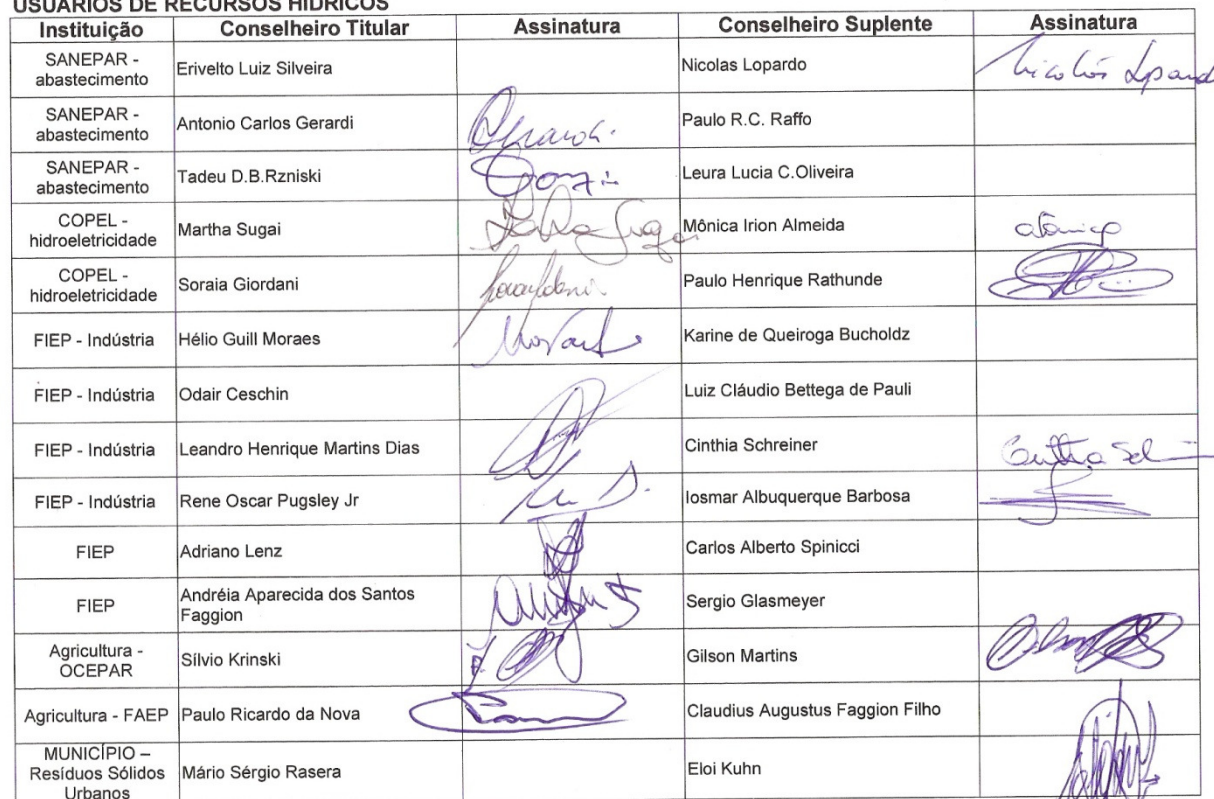 USUÁRIOS DE RECURSOS HÍDRICOS
Instituição Conselheiro Titular Assinatura Conselheiro Suplente Assinatura
SANEPAR -
abastecimento Erivelto Luiz Silveira Nicolas Lopardo Nicolás Lopardo
SANEPAR -
abastecimento Antonio Carlos Gerardi Gerardi Paulo R.C. Raffo
SANEPAR -
abastecimento Tadeu D.B.Rzniski Leura Lucia C.Oliveira
COPEL -
hidroeletricidade Martha Sugai Sugai Mônica Irion Almeida Mônica
COPEL -
hidroeletricidade Soraia Giordani Paulo Henrique Rathunde
FIEP - Indústria Hélio Guill Moraes Karine de Queiroga Bucholdz
FIEP - Indústria Odair Ceschin Luiz Cláudio Bettega de Pauli
FIEP - Indústria Leandro Henrique Martins Dias Cinthia Schreiner
FIEP - Indústria Rene Oscar Pugsley Jr Iosmar Albuquerque Barbosa
FIEP Adriano Lenz Carlos Alberto Spinicci
FIEP Andréia Aparecida dos Santos
Faggion Sergio Glasmeyer
Agricultura -
OCEPAR Sílvio Krinski Gilson Martins
Agricultura - FAEP Paulo Ricardo da Nova Claudius Augustus Faggion Filho
MUNICÍPIO –
Resíduos Sólidos
Urbanos Mário Sérgio Rasera Eloi Kuhn